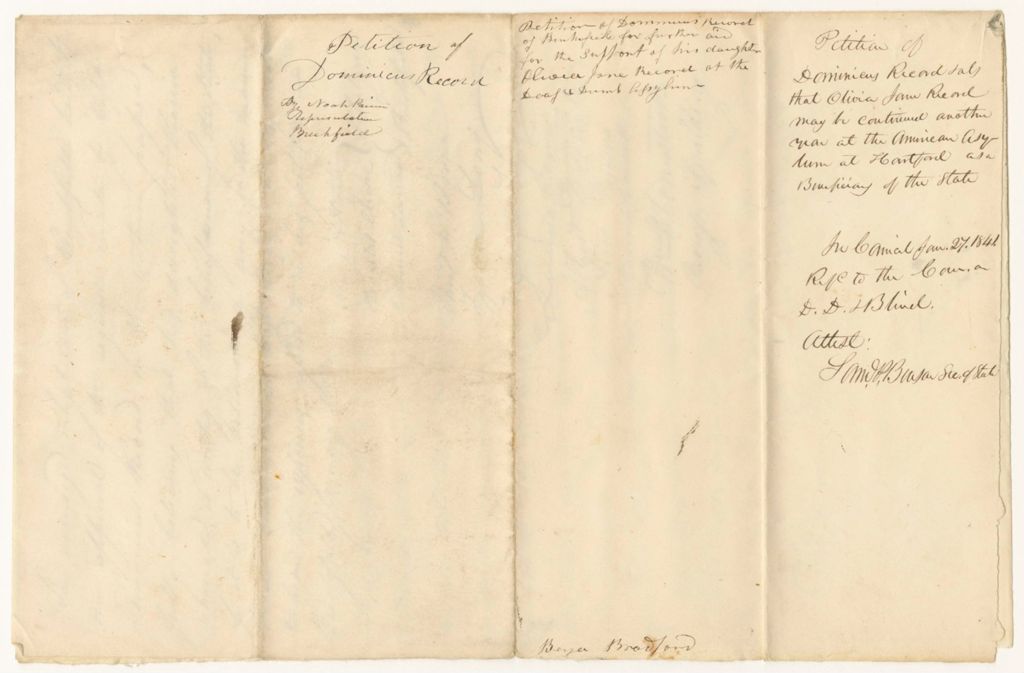 Petition of
Dominicus Record
By Noah Prince
Representative
Buckfield
Petition of Dominicus Record
of Buckfield for further aid
for the Support of his daughter
Olivia Jane Record at the
Deaf & Dumb Asylum
Benja Bradford
Petition of
Dominicus Record & als
that Olivia Jane Record
may be continued another
year at the American Asy-
lum at Hartford as a
Beneficiary of the State
In Council Jan. 27. 1841
Refd to the Com. on
D. D. & Blind.
Attest:
Saml. P. Benson Sec. of State